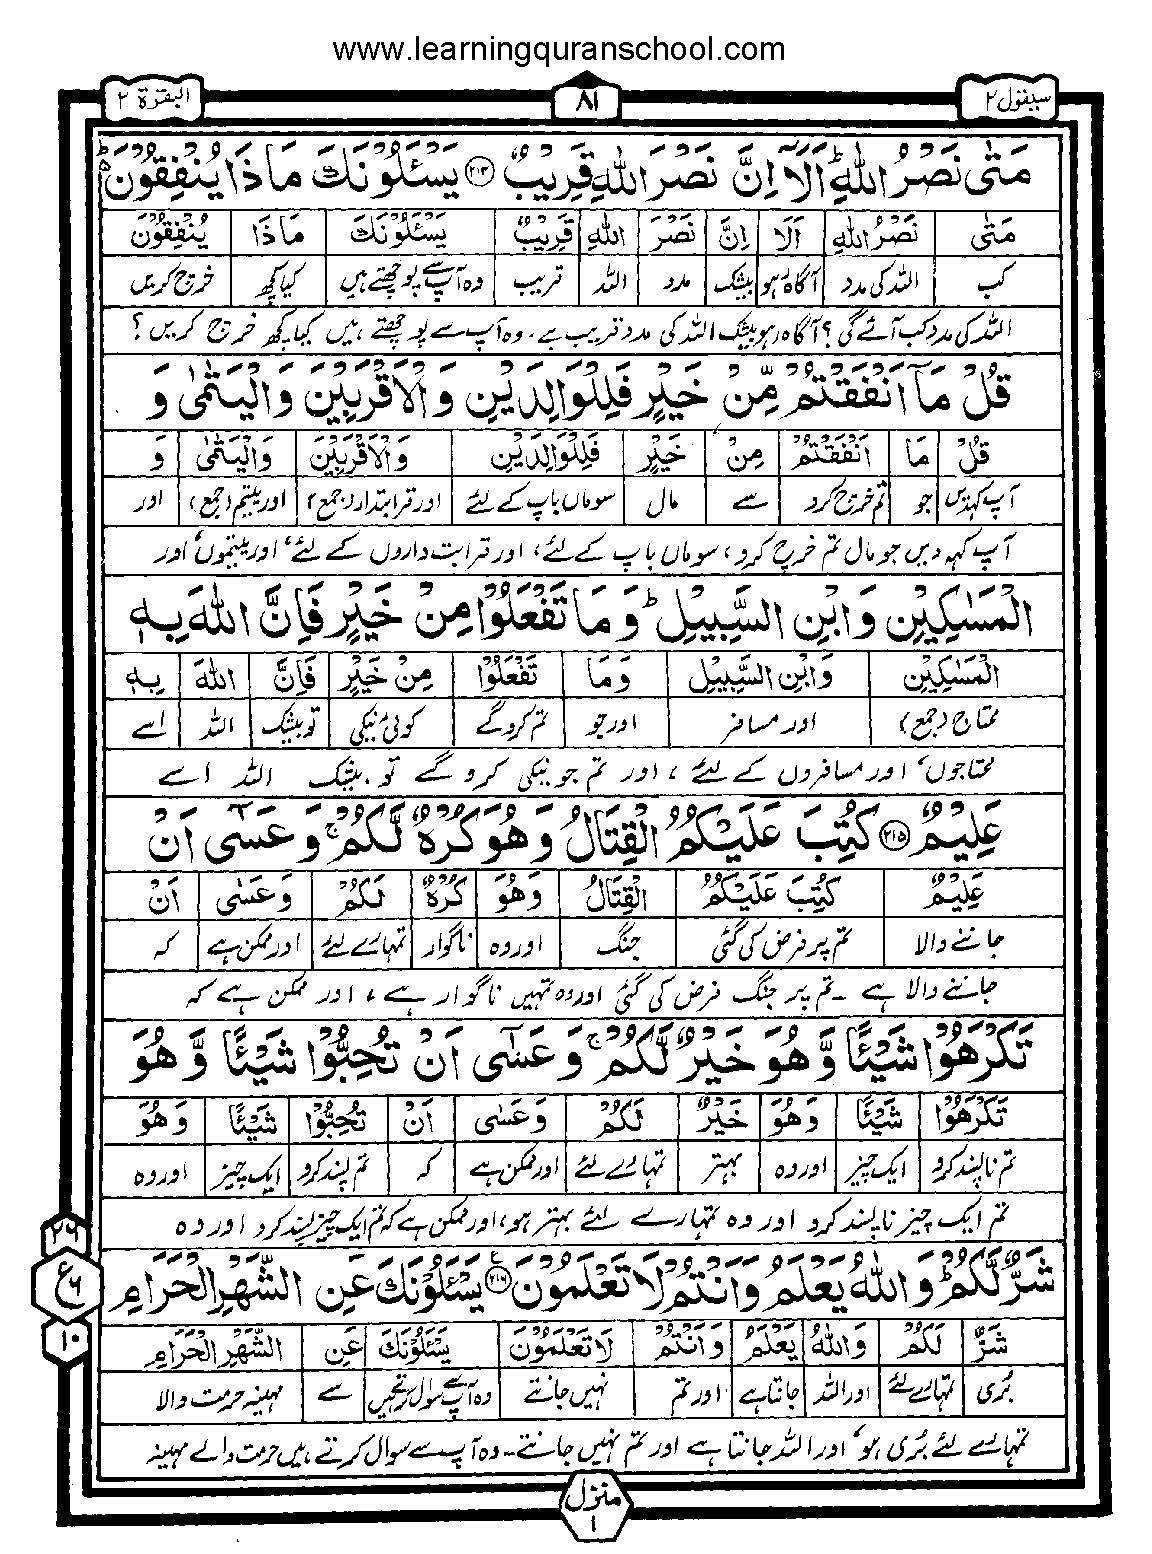 www.learningquranschool.com
سیقول ۲
۸۱
البقرۃ ۲
مَتٰى نَصْرُ اللّٰهِ ؕ اَلَاۤ اِنَّ نَصْرَ اللّٰهِ قَرِیْبٌ ﴿۲۱۴﴾ یَسْـَٔلُوْنَكَ مَا ذَا یُنْفِقُوْنَ ؕ
مَتٰى نَصْرُ اللّٰهِ اَلَا اِنَّ نَصْرَ اللّٰهِ قَرِیْبٌ یَسْـَٔلُوْنَكَ مَا ذَا یُنْفِقُوْنَ
کب اللہ کی مدد آگاہ رہو بیشک مدد اللہ قریب وہ آپ سے پوچھتے ہیں کیا کچھ خرچ کریں
اللہ کی مدد کب آئے گی؟ آگاہ رہو بیشک اللہ کی مدد قریب ہے۔ وہ آپ سے پوچھتے ہیں کیا کچھ خرچ کریں؟
قُلْ مَاۤ اَنْفَقْتُمْ مِّنْ خَیْرٍ فَلِلْوَالِدَیْنِ وَ الْاَقْرَبِیْنَ وَ الْیَتٰمٰى وَ
قُلْ مَا اَنْفَقْتُمْ مِنْ خَیْرٍ فَلِلْوَالِدَیْنِ وَالْاَقْرَبِیْنَ وَالْیَتٰمٰى وَ
آپ کہدیں جو تم خرچ کرو سے مال سو ماں باپ کے لئے اور قرابتدار (جمع) اور یتیم (جمع) اور
آپ کہہ دیں جو مال تم خرچ کرو، سو ماں باپ کے لئے، اور قرابت داروں کے لئے، اور یتیموں، اور
الْمَسٰكِیْنِ وَ ابْنِ السَّبِیْلِ ؕ وَ مَا تَفْعَلُوْا مِنْ خَیْرٍ فَاِنَّ اللّٰهَ بِهٖ
الْمَسٰكِیْنِ وَابْنِ السَّبِیْلِ وَمَا تَفْعَلُوْا مِنْ خَیْرٍ فَاِنَّ اللّٰهَ بِهٖ
محتاج (جمع) اور مسافر اور جو تم کرو گے کوئی نیکی تو بیشک اللہ اسے
محتاجوں، اور مسافروں کے لئے، اور تم جو نیکی کرو گے تو بیشک اللہ اسے
عَلِیْمٌ ﴿۲۱۵﴾ كُتِبَ عَلَیْكُمُ الْقِتَالُ وَ هُوَ كُرْهٌ لَّكُمْ ۚ وَ عَسٰۤى اَنْ
عَلِیْمٌ كُتِبَ عَلَیْكُمُ الْقِتَالُ وَهُوَ كُرْهٌ لَكُمْ وَعَسٰى اَنْ
جاننے والا تم پر فرض کی گئی جنگ اور وہ ناگوار تمہارے لئے اور ممکن ہے کہ
جاننے والا ہے۔ تم پر جنگ فرض کی گئی اور وہ تمہیں ناگوار ہے، اور ممکن ہے کہ
تَكْرَهُوْا شَیْـًٔا وَّ هُوَ خَیْرٌ لَّكُمْ ۚ وَ عَسٰۤى اَنْ تُحِبُّوْا شَیْـًٔا وَّ هُوَ
تَكْرَهُوْا شَیْـًٔا وَهُوَ خَیْرٌ لَكُمْ وَعَسٰى اَنْ تُحِبُّوْا شَیْـًٔا وَهُوَ
تم ناپسند کرو ایک چیز اور وہ بہتر تمہارے لئے اور ممکن ہے کہ تم پسند کرو ایک چیز اور وہ
تم ایک چیز ناپسند کرو اور وہ تمہارے لئے بہتر ہو، اور ممکن ہے کہ تم ایک چیز پسند کرو اور وہ
شَرٌّ لَّكُمْ ؕ وَ اللّٰهُ یَعْلَمُ وَ اَنْتُمْ لَا تَعْلَمُوْنَ ﴿۲۱۶﴾ ع یَسْـَٔلُوْنَكَ عَنِ الشَّهْرِ الْحَرَامِ
۲۶
ع ۶
۱۰
شَرٌّ لَكُمْ وَاللّٰهُ یَعْلَمُ وَاَنْتُمْ لَا تَعْلَمُوْنَ یَسْـَٔلُوْنَكَ عَنِ الشَّهْرِ الْحَرَامِ
بُری تمہارے لئے اور اللہ جانتا ہے اور تم نہیں جانتے وہ آپ سے سوال کرتے ہیں سے مہینہ حرمت والا
تمہارے لئے بُری ہو، اور اللہ جانتا ہے اور تم نہیں جانتے۔ وہ آپ سے سوال کرتے ہیں حرمت والے مہینہ
منزل
۱